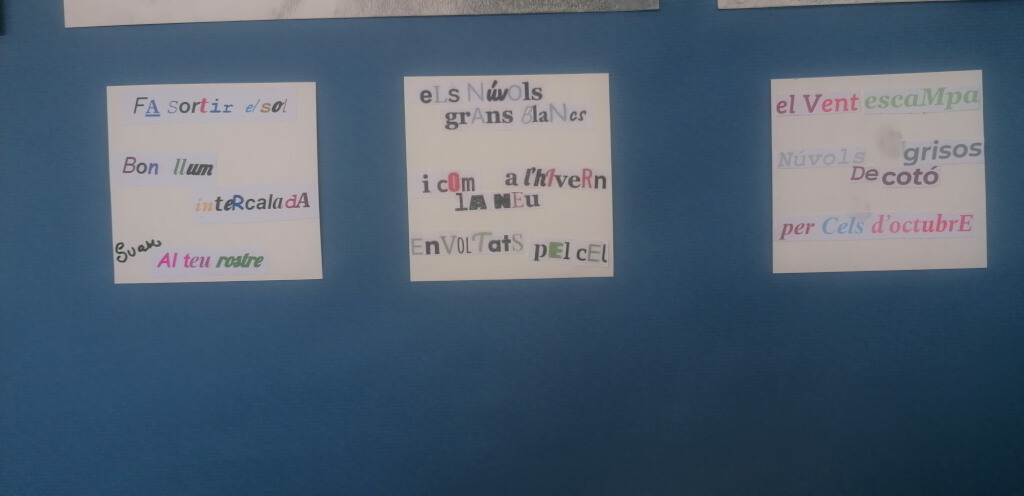 FA sortir el sol
Bon llum
inteRcaladA
Suau
Al teu rostre
eLs Núvols
grAns BlaNcs
i cOm a l'hIveRn
lA NEu
EnVOLTatS pEl cEl
el Vent escaMpa
Núvols grisos
De cotó
per Cels d'octubrE